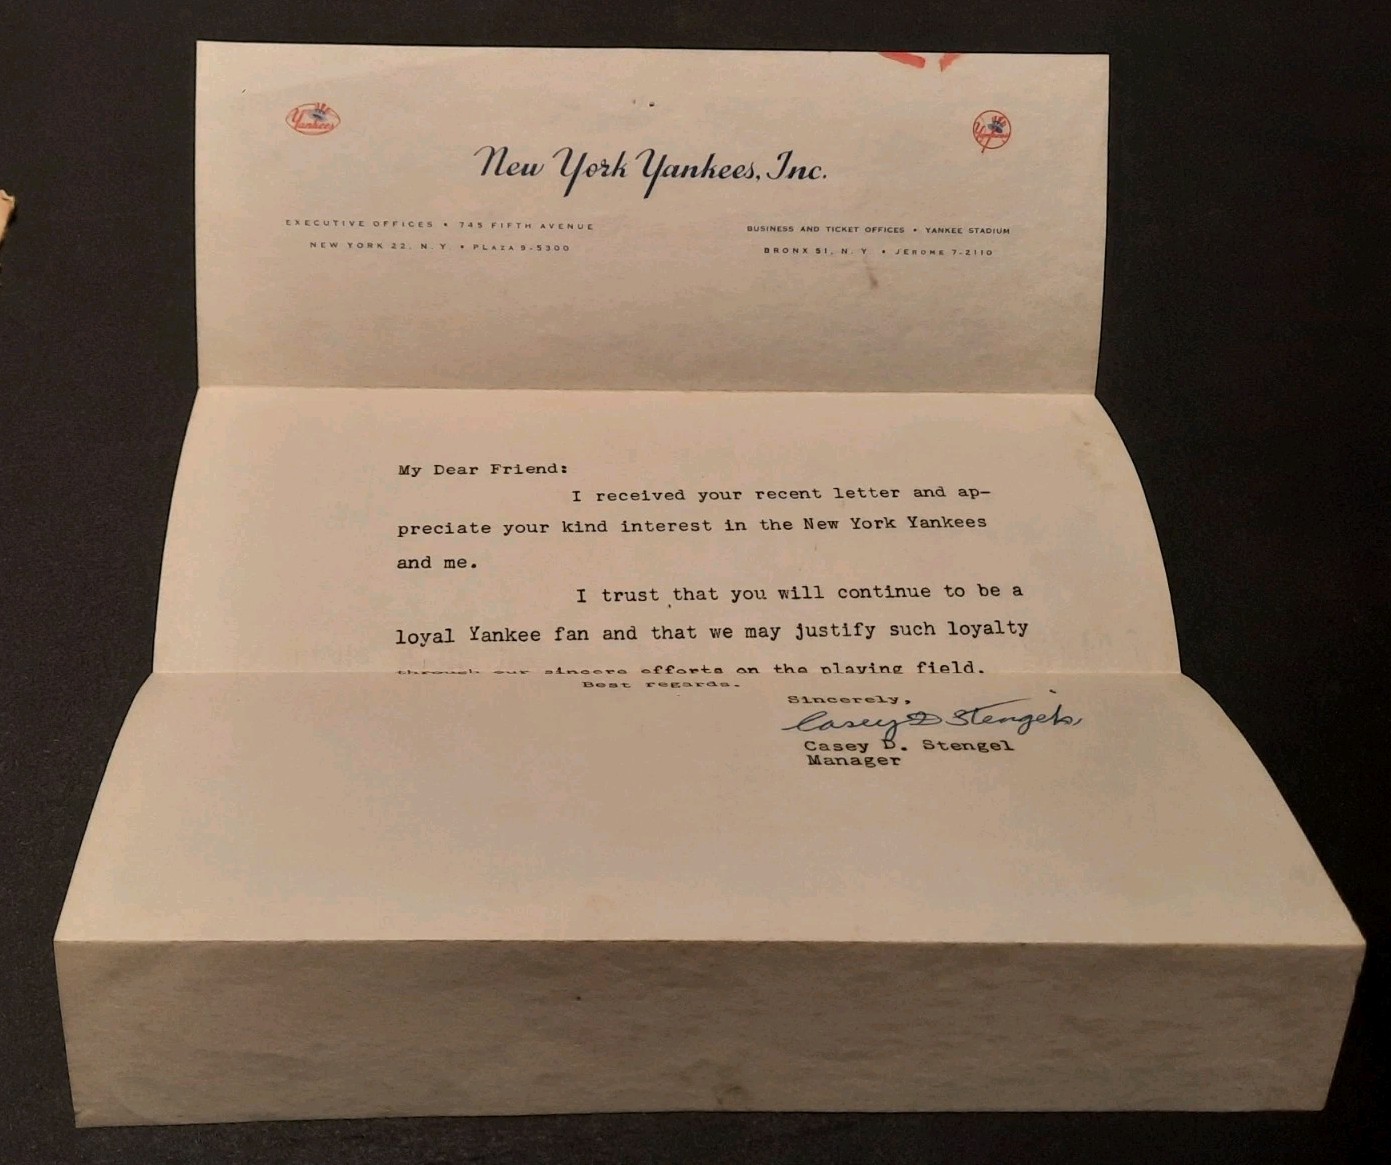 Yankees
Yankees
New York Yankees, Inc.
EXECUTIVE OFFICES • 745 FIFTH AVENUE
NEW YORK 22, N. Y. • PLAZA 9-5300
BUSINESS AND TICKET OFFICES • YANKEE STADIUM
BRONX 51, N. Y. • JEROME 7-2110
My Dear Friend:
I received your recent letter and ap-
preciate your kind interest in the New York Yankees
and me.
I trust that you will continue to be a
loyal Yankee fan and that we may justify such loyalty
through our sincere efforts on the playing field.
Best regards.
Sincerely,
Casey D Stengel
Casey D. Stengel
Manager